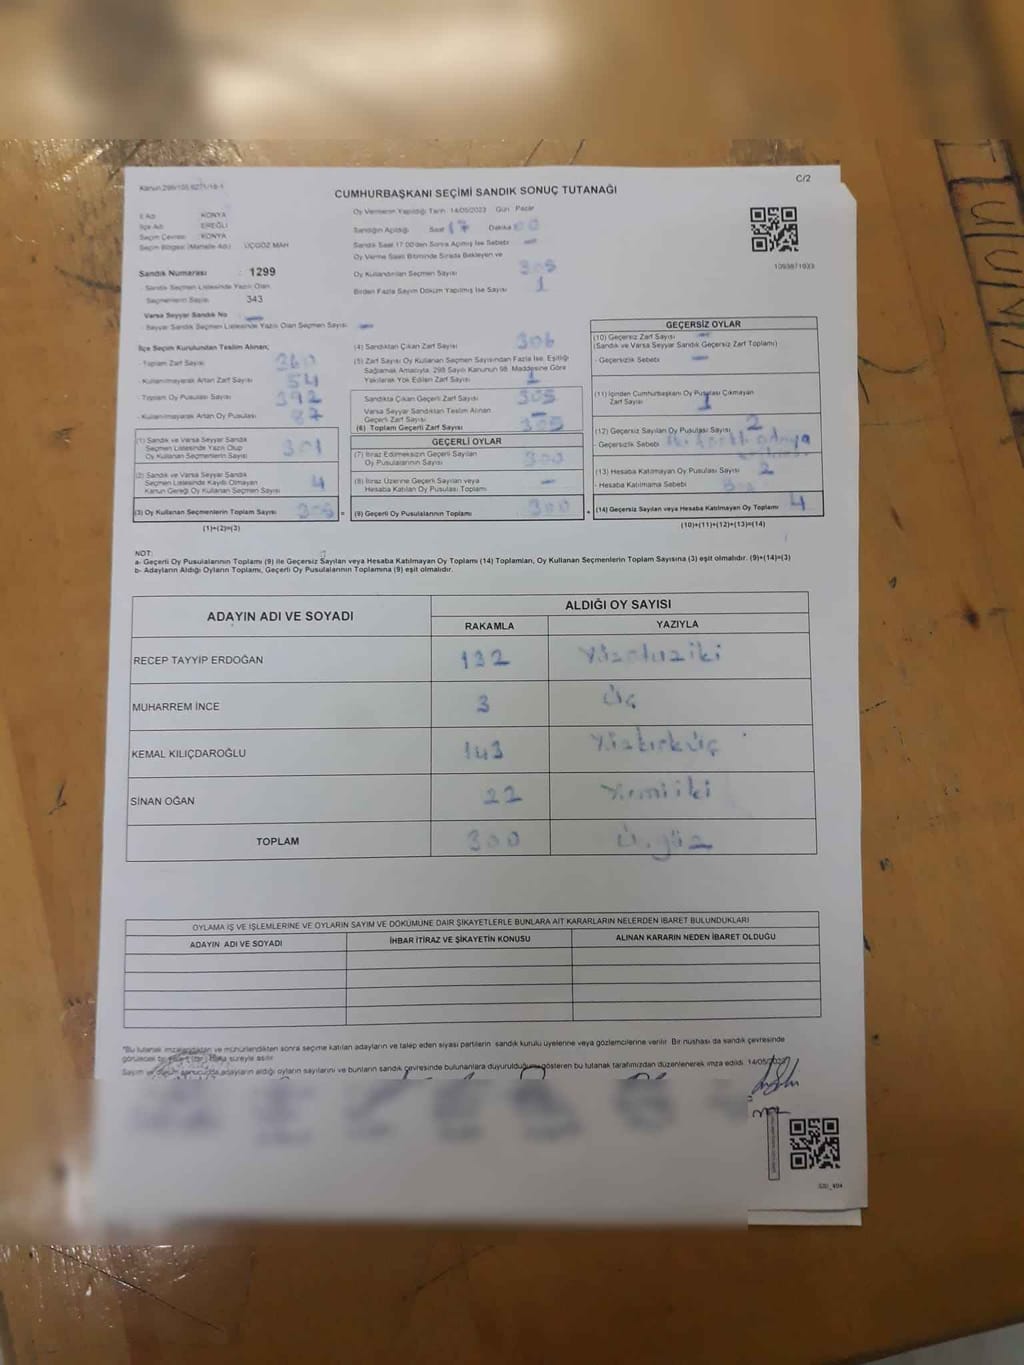 Kanun:298/105,6271/18-1
C/2
CUMHURBAŞKANI SEÇİMİ SANDIK SONUÇ TUTANAĞI
İl Adı KONYA
İlçe Adı EREĞLİ
Seçim Çevresi KONYA
Seçim Bölgesi (Mahalle Adı) ÜÇGÖZ MAH
Sandık Numarası 1299
- Sandık Seçmen Listesinde Yazılı Olan
Seçmenlerin Sayısı 343
Varsa Seyyar Sandık No
- Seyyar Sandık Seçmen Listesinde Yazılı Olan Seçmen Sayısı
Oy Vermenin Yapıldığı Tarih 14/05/2023 Gün Pazar
Sandığın Açıldığı Saat 17 Dakika 00
Sandık Saat 17:00'den Sonra Açılmış İse Sebebi
Oy Verme Saati Bitiminde Sırada Bekleyen ve
Oy Kullandırılan Seçmen Sayısı 305
Birden Fazla Sayım Döküm Yapılmış İse Sayısı 1
1093871933
İlçe Seçim Kurulundan Teslim Alınan;
- Toplam Zarf Sayısı 360
- Kullanılmayarak Artan Zarf Sayısı 54
- Toplam Oy Pusulası Sayısı 392
- Kullanılmayarak Artan Oy Pusulası 87
(1) Sandık ve Varsa Seyyar Sandık
Seçmen Listesinde Yazılı Olup
Oy Kullanan Seçmenlerin Sayısı 301
(2) Sandık ve Varsa Seyyar Sandık
Seçmen Listesinde Kaydı Olmayan
Kanun Gereği Oy Kullanan Seçmen Sayısı 4
(3) Oy Kullanan Seçmenlerin Toplam Sayısı 305 =
(1)+(2)=(3)
(4) Sandıktan Çıkan Zarf Sayısı 306
(5) Zarf Sayısı Oy Kullanan Seçmen Sayısından Fazla İse, Eşitliği
Sağlamak Amacıyla, 298 Sayılı Kanunun 98. Maddesine Göre
Yakılarak Yok Edilen Zarf Sayısı 1
Sandıkta Çıkan Geçerli Zarf Sayısı 305
Varsa Seyyar Sandıktan Teslim Alınan
Geçerli Zarf Sayısı
(6) Toplam Geçerli Zarf Sayısı 305
GEÇERLİ OYLAR
(7) İtiraz Edilmeksizin Geçerli Sayılan
Oy Pusulalarının Sayısı 300
(8) İtiraz Üzerine Geçerli Sayılan veya
Hesaba Katılan Oy Pusulası Toplamı
(9) Geçerli Oy Pusulalarının Toplamı 300 +
GEÇERSİZ OYLAR
(10) Geçersiz Zarf Sayısı
(Sandık ve Varsa Seyyar Sandık Geçersiz Zarf Toplamı)
- Geçersizlik Sebebi
(11) İçinden Cumhurbaşkanı Oy Pusulası Çıkmayan
Zarf Sayısı 1
(12) Geçersiz Sayılan Oy Pusulası Sayısı 2
- Geçersizlik Sebebi İki farklı adaya
(13) Hesaba Katılmayan Oy Pusulası Sayısı 2
- Hesaba Katılmama Sebebi
(14) Geçersiz Sayılan veya Hesaba Katılmayan Oy Toplamı 4
(10)+(11)+(12)+(13)=(14)
NOT:
a- Geçerli Oy Pusulalarının Toplamı (9) ile Geçersiz Sayılan veya Hesaba Katılmayan Oy Toplamı (14) Toplamları, Oy Kullanan Seçmenlerin Toplam Sayısına (3) eşit olmalıdır. (9)+(14)=(3)
b- Adayların Aldığı Oyların Toplamı, Geçerli Oy Pusulalarının Toplamına (9) eşit olmalıdır.
ADAYIN ADI VE SOYADI
ALDIĞI OY SAYISI
RAKAMLA YAZIYLA
RECEP TAYYİP ERDOĞAN 132 Yüzotuziki
MUHARREM İNCE 3 Üç
KEMAL KILIÇDAROĞLU 143 Yüzkırküç
SİNAN OĞAN 22 Yirmiiki
TOPLAM 300 Üçyüz
OYLAMA İŞ VE İŞLEMLERİNE VE OYLARIN SAYIM VE DÖKÜMÜNE DAİR ŞİKAYETLERLE BUNLARA AİT KARARLARIN NELERDEN İBARET BULUNDUKLARI
ADAYIN ADI VE SOYADI İHBAR İTİRAZ VE ŞİKAYETİN KONUSU ALINAN KARARIN NEDEN İBARET OLDUĞU
*Bu tutanak imzalandıktan ve mühürlendikten sonra seçime katılan adayların ve talep eden siyasi partilerin sandık kurulu üyelerine veya gözlemcilerine verilir. Bir nüshası da sandık çevresinde
görülecek bir yere 1 (bir) hafta süreyle asılır.
Sayım ve döküm sonucunda adayların aldığı oyların sayılarını ve bunların sandık çevresinde bulunanlara duyurulduğunu gösteren bu tutanak tarafımızdan düzenlenerek imza edildi. 14/05/2023